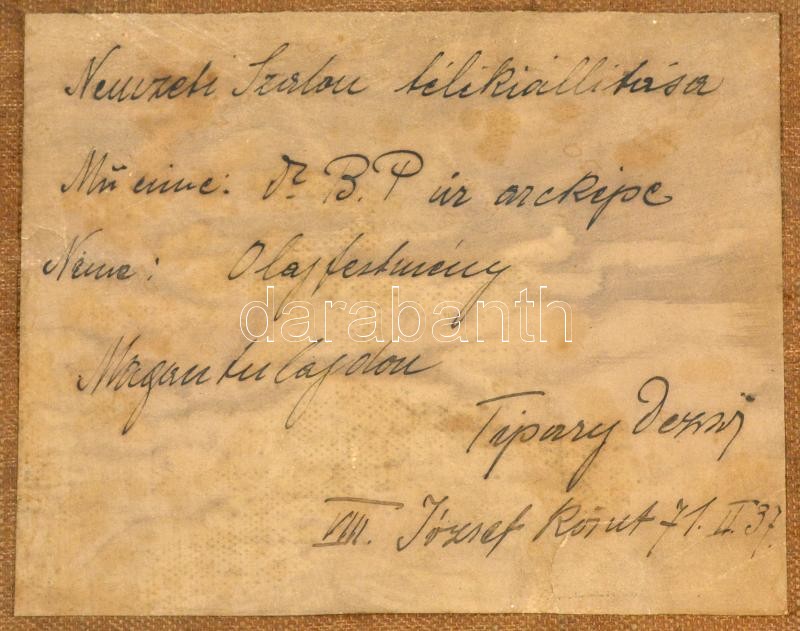 Nemzeti Szalon télikiállitása
Mű cime: Dr. B. P úr arcképe
Neme: Olajfestmény
darabanth
Magántulajdon
Tipary Dezső
VIII. József Körut 71. II. 37.